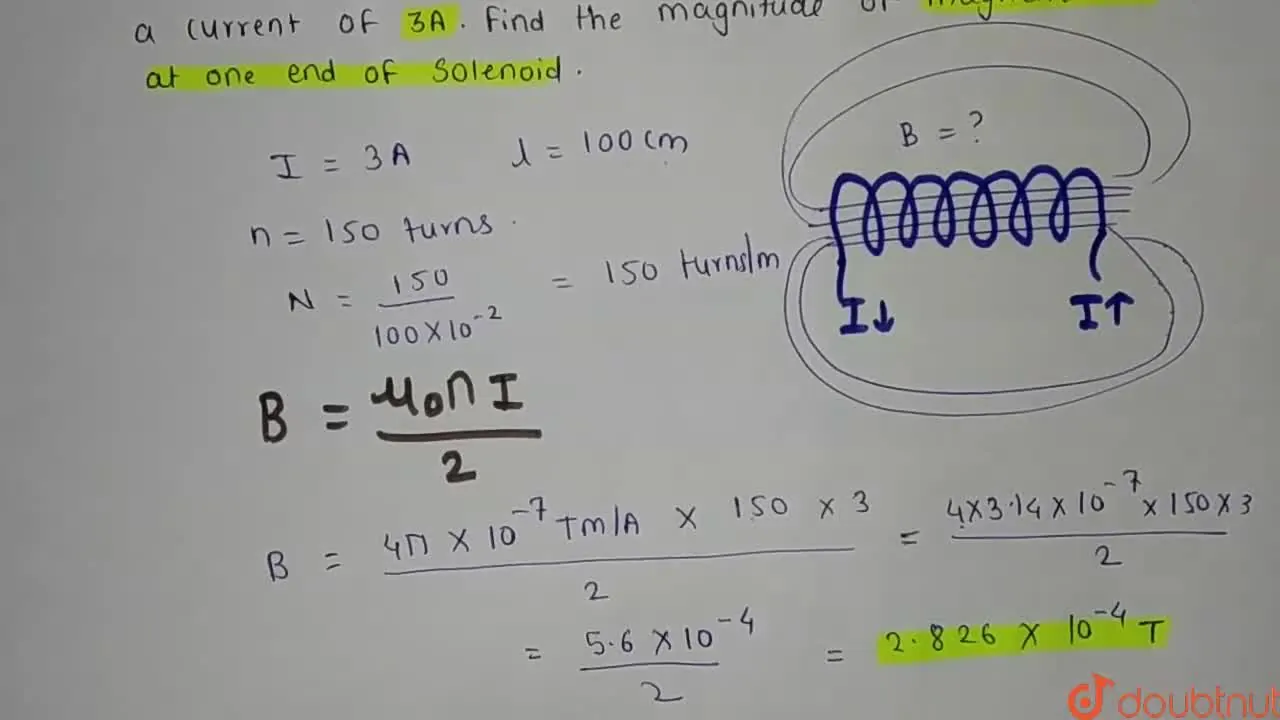 a current of 3A. Find the magnitude of
at one end of Solenoid.
B = ?
I = 3A l = 100 cm
n = 150 turns.
N = 150 / 100 X 10⁻² = 150 turns/m
I↓ I↑
B = μ₀ n I / 2
B = 4π X 10⁻⁷ Tm/A X 150 X 3 / 2 = 4 X 3.14 X 10⁻⁷ X 150 X 3 / 2
= 5.6 X 10⁻⁴ / 2 = 2.826 X 10⁻⁴ T
doubtnut